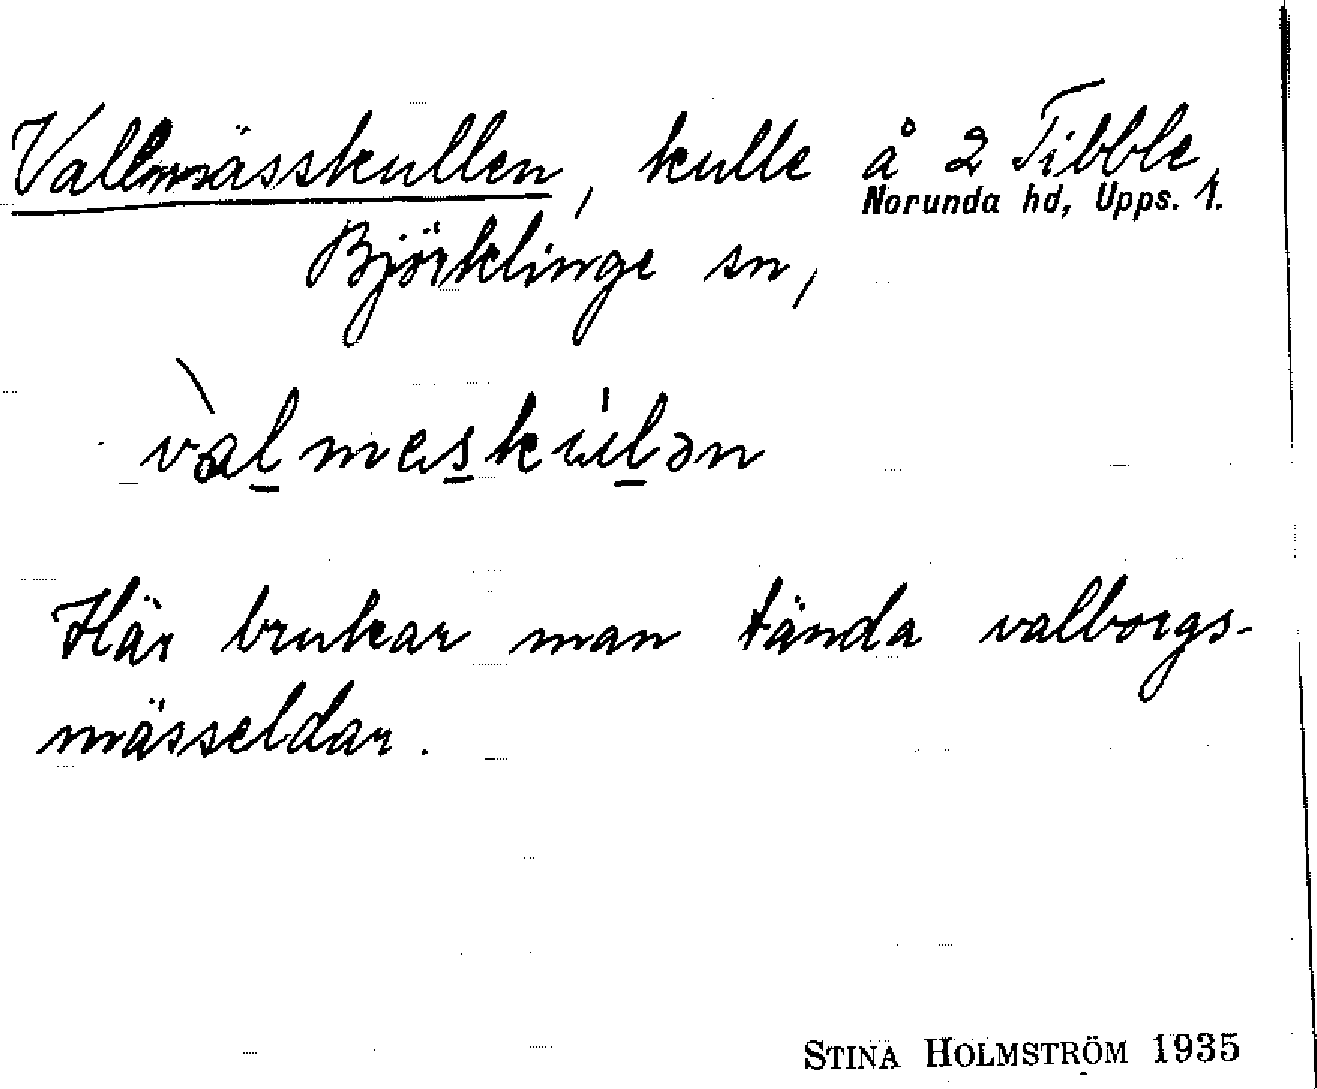 Vallmässkullen, kulle å 2 Tibble,
Norunda hd, Upps. l.
Björklinge sn,
vàl̲mes̲kùl̲ən
Här brukar man tända valborgs-
mässeldar.
STINA HOLMSTRÖM 1935